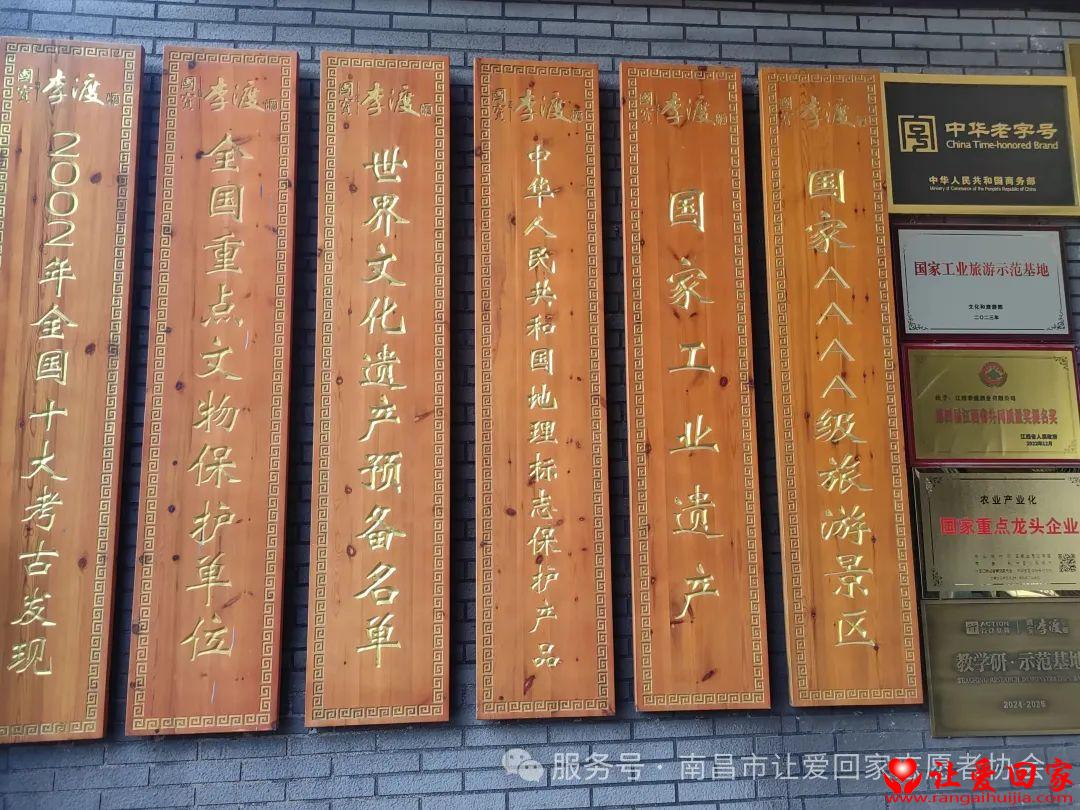 國寶李渡酒
2002年全国十大考古发现
國寶李渡酒
全国重点文物保护单位
國寶李渡酒
世界文化遗产预备名单
國寶李渡酒
中华人民共和国地理标志保护产品
國寶李渡酒
国家工业遗产
國寶李渡酒
国家AAAA级旅游景区
中华老字号
China Time-honored Brand
中华人民共和国商务部
Ministry of Commerce of the People's Republic of China
国家工业旅游示范基地
文化和旅游部
二〇二三年
授予：江西李渡酒业有限公司
第四届江西省井冈质量奖提名奖
江西省人民政府
2022年12月
农业产业化
国家重点龙头企业
ACTION
行动教育
國寶李渡
教学研·示范基地
2024-2026
服务号·南昌市让爱回家志愿者协会
让爱回家
www.rangaihuijia.com